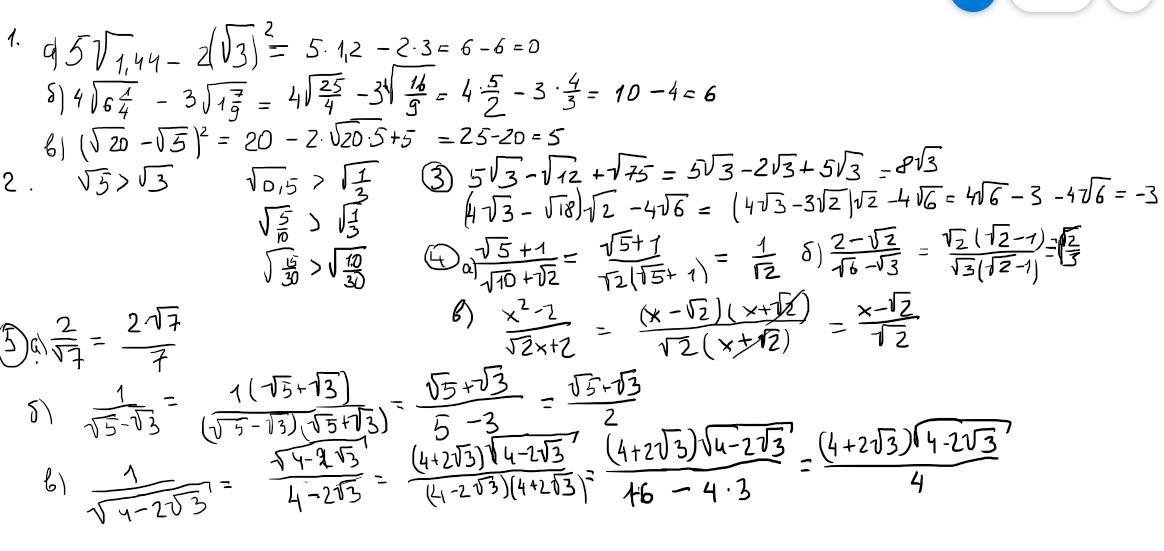 1. а) 5√1,44 − 2(√3)² = 5·1,2 − 2·3 = 6 − 6 = 0
б) 4√6 1/4 − 3√1 7/9 = 4√25/4 − 3√16/9 = 4·5/2 − 3·4/3 = 10 − 4 = 6
в) (√20 − √5)² = 20 − 2·√20·5 + 5 = 25 − 20 = 5
2. √5 > √3 √0,5 > √1/3
√5/10 > √1/3
√15/30 > √10/30
③ 5√3 − √12 + √75 = 5√3 − 2√3 + 5√3 = 8√3
(4√3 − √18)√2 − 4√6 = (4√3 − 3√2)√2 − 4√6 = 4√6 − 3 − 4√6 = −3
④ а) (√5 + 1)/(√10 + √2) = (√5 + 1)/(√2(√5 + 1)) = 1/√2 б) (2 − √2)/(√6 − √3) = √2(√2 − 1)/(√3(√2 − 1)) = √2/3
в) (x² − 2)/(√2x + 2) = (x − √2)(x + √2)/(√2(x + √2)) = (x − √2)/√2
⑤ а) 2/√7 = 2·√7/7
б) 1/(√5 − √3) = 1(√5 + √3)/((√5 − √3)(√5 + √3)) = (√5 + √3)/(5 − 3) = (√5 + √3)/2
в) 1/√(4 − 2√3) = √(4 − 2√3)/(4 − 2√3) = (4 + 2√3)√(4 − 2√3)/((4 − 2√3)(4 + 2√3)) = (4 + 2√3)√(4 − 2√3)/(16 − 4·3) = (4 + 2√3)√(4 − 2√3)/4